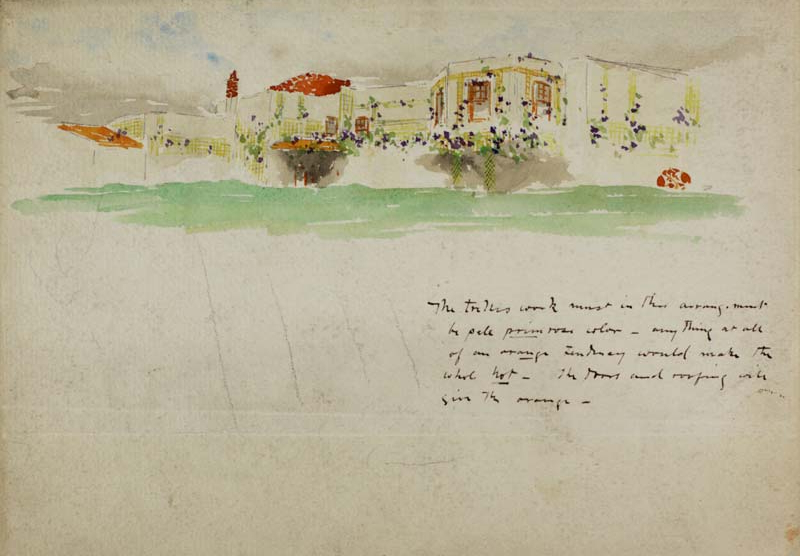 The trellis work must in this arrangement
be pale primrose color – anything at all
of an orange tendency would make the
whole hot – The doors and roofing will
give the orange –